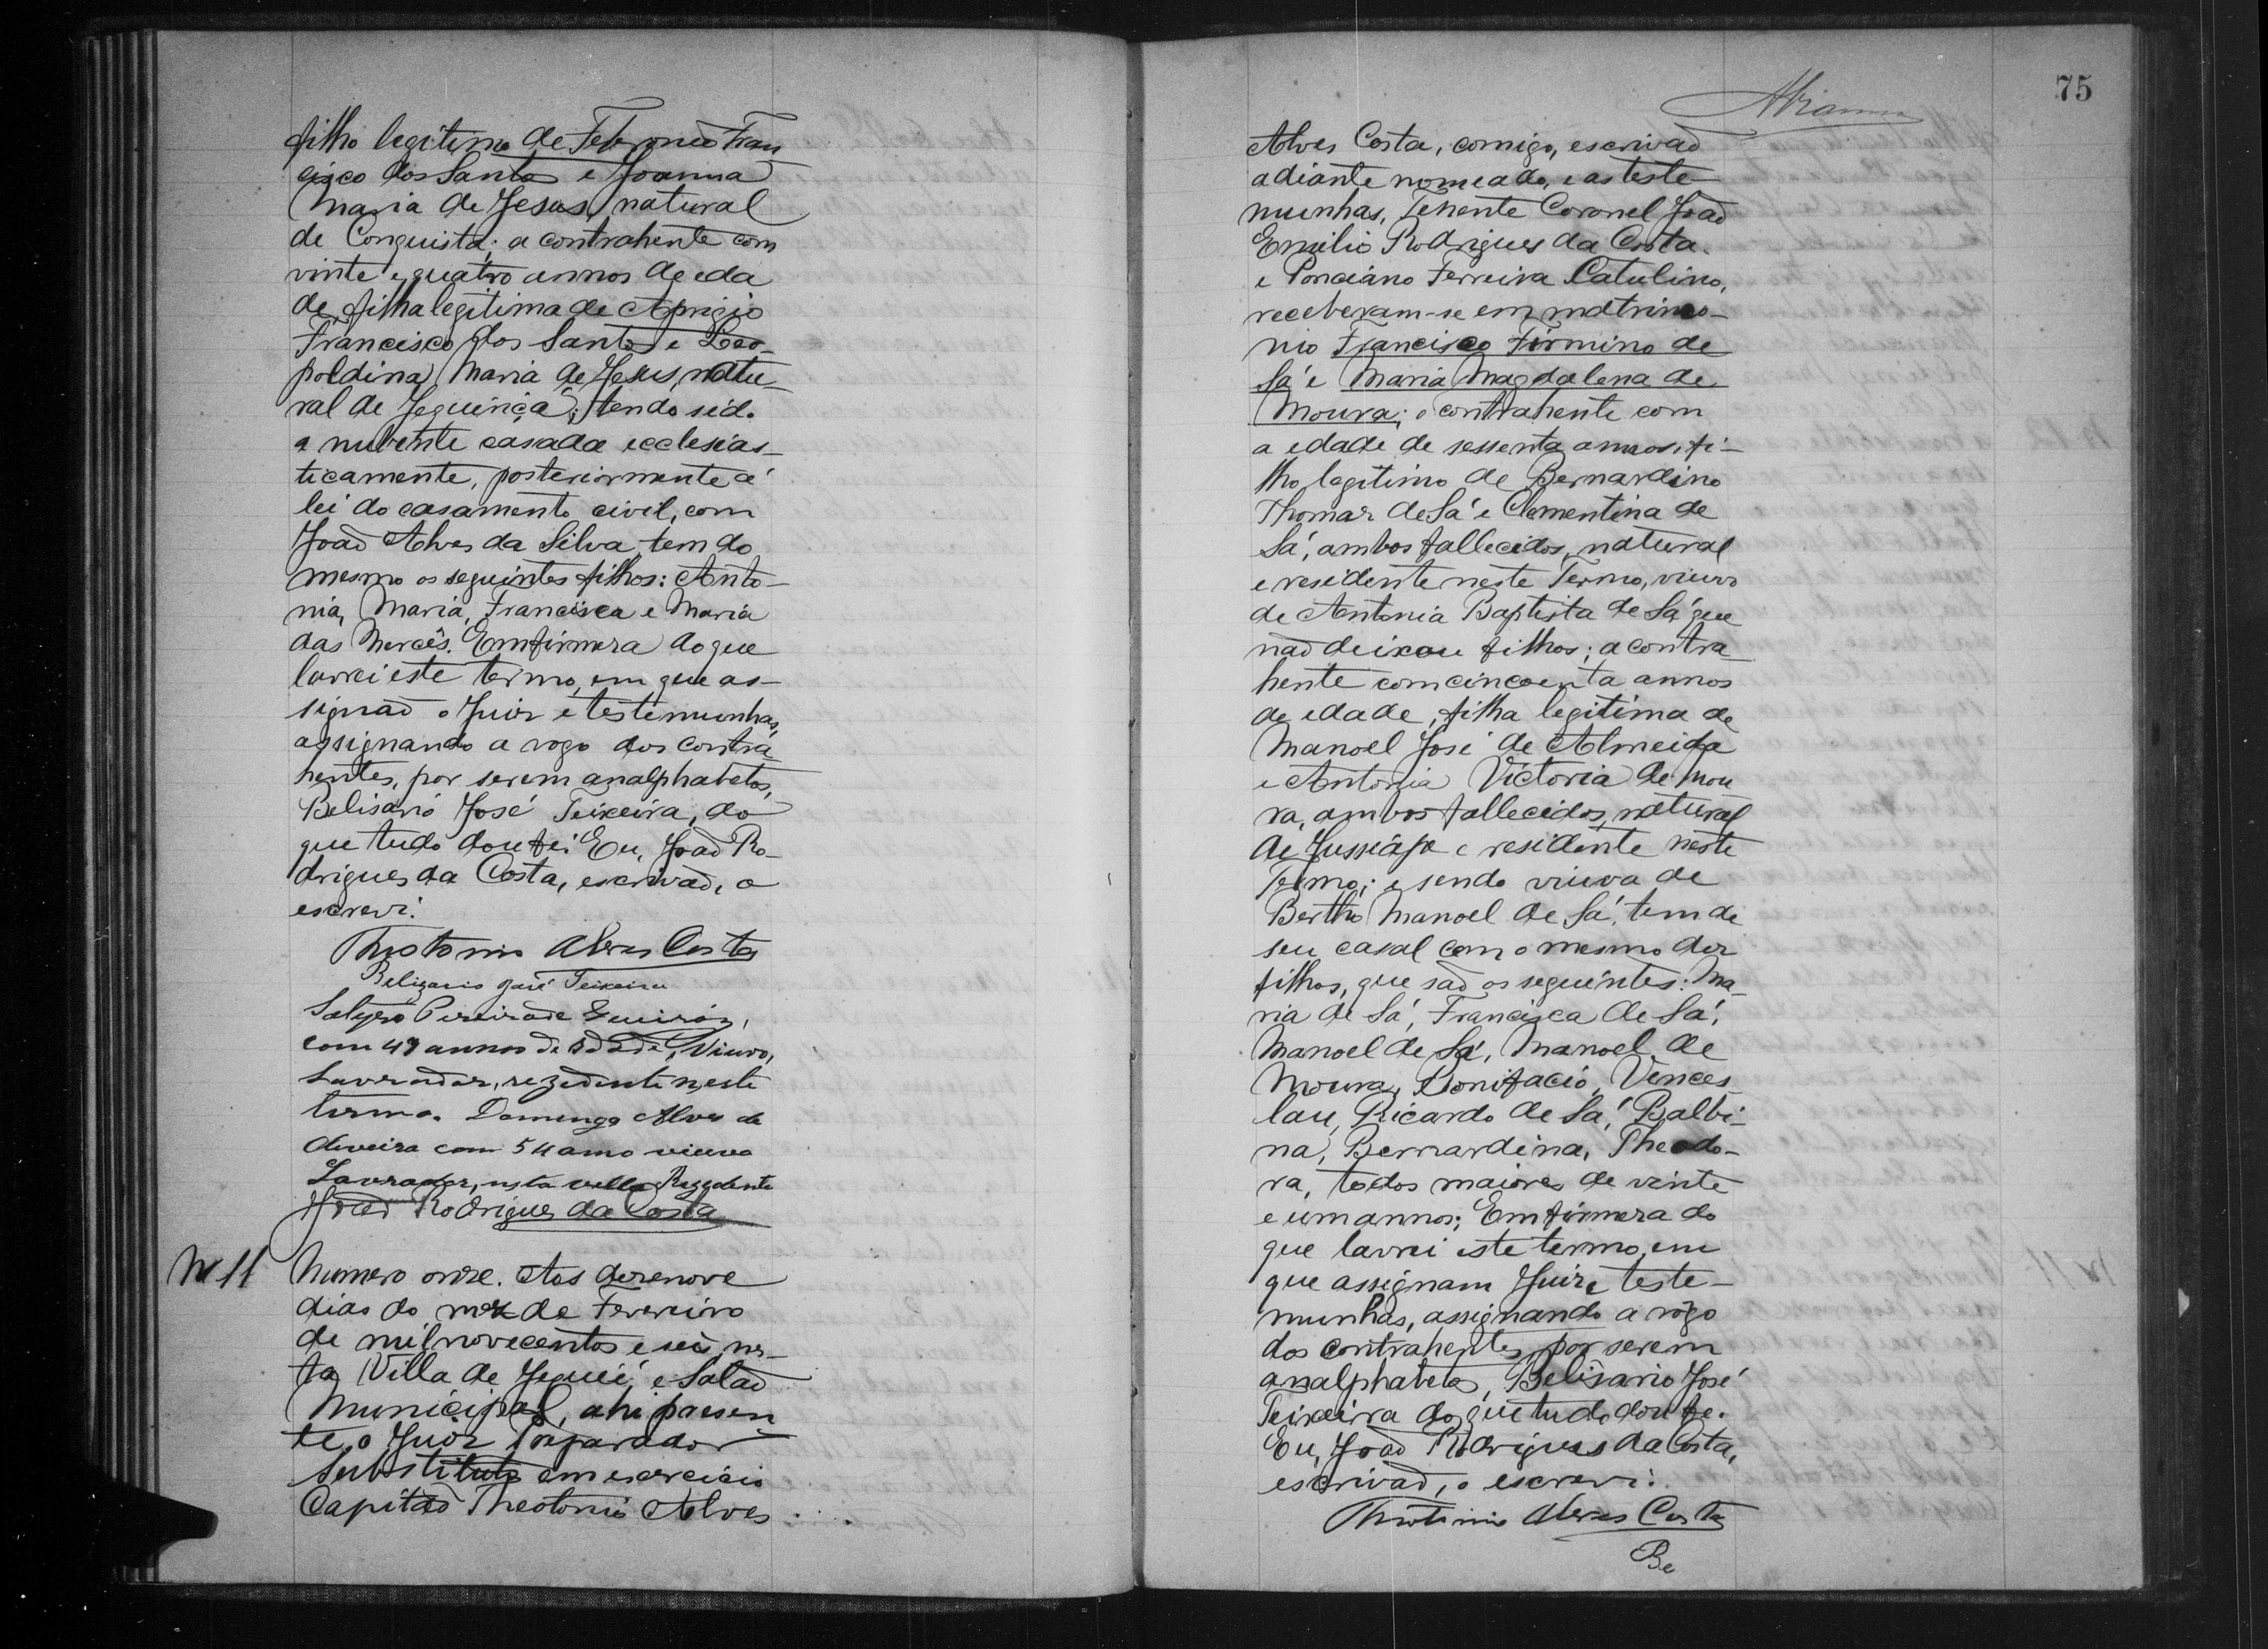 filho legitimo de Febronio Fran
cisco dos Santos e Joanna
Maria de Jesus, natural
de Conquista; a contrahente com
vinte e quatro annos de eda
de, filha legitima de Aprigio
Francisco dos Santos e Leo-
poldina Maria de Jesus, natu-
ral de Jequiriçá; tendo sido
a nubente casada ecclesias-
ticamente, posteriormente á
lei do casamento civil, com
João Alves da Silva, tem do
mesmo os seguintes filhos: Anto-
nia, Maria, Francisca e Maria
das Mercês. Em firmeza do que
lavrei este termo, em que as-
signão o Juiz e testemunhas,
assignando a rogo dos contra
hentes, por serem analphabetos,
Belisario José Teixeira, do
que tudo dou fé. Eu, João Ro-
drigues da Costa, escrivão, o
escrevi.
Theotonio Alves Costa
Belizario José Teixeira
Satyro Pereira de Queiróz,
com 49 annos de idade, Viuvo,
Lavrador, rezidente neste
termo. Domingo Alves de
Oliveira com 54 anno viuvo
Lavrador, nesta villa Rezedente
João Rodrigues da Costa
N 11
Numero onze. Aos dezenove
dias do mez de Fevereiro
de mil novecentos e seis, nes-
ta Villa de Jequié, e Salão
Municipal, ahi presen
te, o Juiz Preparador
Substituto em exercicio
Capitão Theotonio Alves
75
Alves Costa, comigo, escrivão
adiante nomeado, e as teste-
munhas, Tenente Coronel João
Emilio Rodrigues da Costa
e Ponciano Ferreira Catulino,
receberam-se em matrimo-
nio Francisco Firmino de
Sá e Maria Magdalena de
Moura; o contrahente com
a edade de sessenta annos, fi-
lho legitimo de Bernardino
Thomaz de Sá e Clementina de
Sá, ambos fallecidos, natural
e residente neste Termo, viuvo
de Antonia Baptista de Sá que
não deixou filhos; a contra
hente com cincoenta annos
de edade, filha legitima de
Manoel José de Almeida
e Antonia Victoria de Mou
ra, ambos fallecidos, natural
de Jussiápe e residente neste
Termo; e sendo viuva de
Bertho Manoel de Sá, tem de
seu casal com o mesmo dez
filhos, que são os seguintes: Ma-
ria de Sá, Francisca de Sá,
Manoel de Sá, Manoel de
Moura, Bonifacio, Vences
lau, Ricardo de Sá, Balbi-
na, Bernardina, Theodo-
ra, todos maiores de vinte
e um annos; Em firmeza do
que lavrei este termo, em
que assignam Juiz e teste-
munhas, assignando a rogo
dos contrahentes, por serem
analphabetos, Belisario José
Teixeira do que tudo dou fé.
Eu, João Rodrigues da Costa,
escrivão, o escrevi.
Theotonio Alves Costa
Be